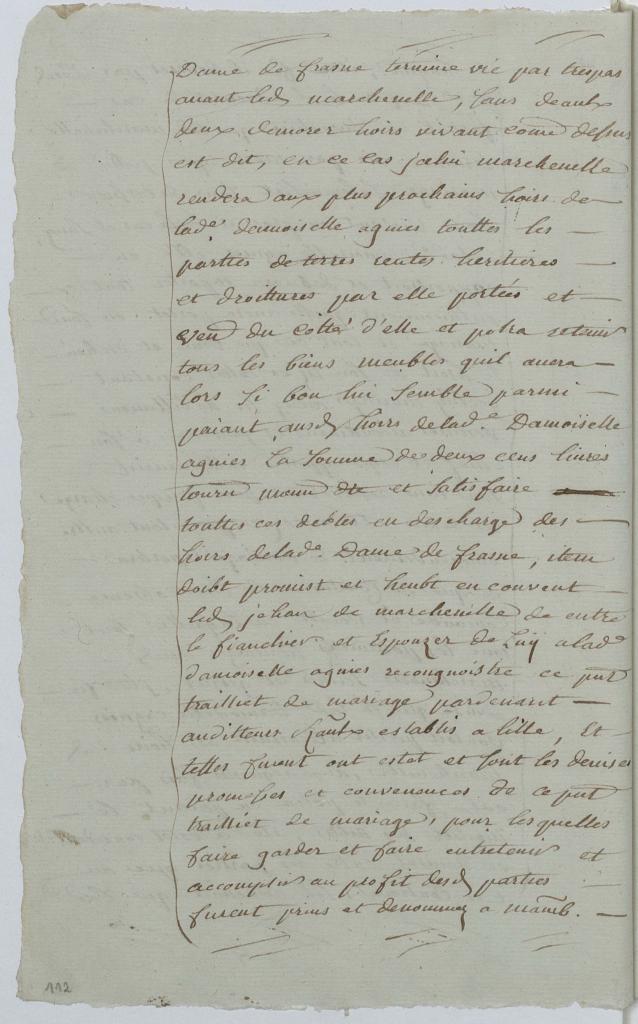 Dame de frasne termine vie par trespas
auant led marchenelle, sans deaulx
deux demorer hoirs vivant come dessus
est dit, en ce cas jcelui marchenelle
rendera aux plus prochains hoirs de
lad.e demoiselle agnies touttes les
parties de terres rentes heritieres
et droittures par elle portées et
du cotté d'elle et polra retenir
tous les biens meubles quil auera
lors si bon lui semble parmi
paiant ausd hoirs delad.e Damoiselle
agnies La somme de deux cens livres
tourn et satisfaire
touttes ces debtes en descharge des
hoirs delad.e Dame de frasne, item
doibt promist et heubt en couvent
led jehan de marchenelle de entre
le fianchier et Espouzer de Luy a lad.e
damoiselle agnies recongnoistre ce pnt
traittiet de mariage pardeuant
auditteurs establis a lille, Et
telles furent ont estet et sont les devises
promesses et convenances de ce pnt
traittiet de mariage, pour lesquelles
faire garder et faire entretenir et
accomplir au profit desd parties
furent prins et denommez a mamb.
112